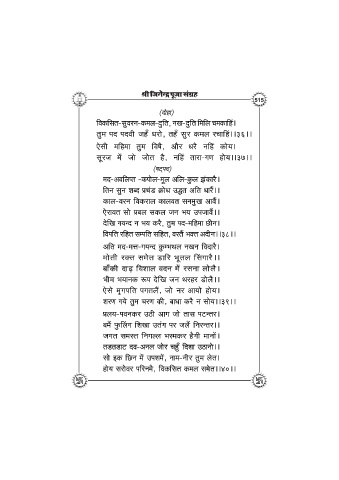 श्री जिनेन्द्र पूजा संग्रह
515
(दोहा)
विकसित-सुवरन-कमल-दुति, नख-दुति मिलि चमकाहिं।
तुम पद पदवी जहँ धरो, तहँ सुर कमल रचाहिं।।३६।।
ऐसी महिमा तुम विषै, और धरै नहिं कोय।
सूरज में जो जोत है, नहिं तारा-गण होय।।३७।।
(षट्पद)
मद-अवलिप्त -कपोल-मूल अलि-कुल झंकारै।
तिन सुन शब्द प्रचंड क्रोध उद्धत अति धारैं।।
काल-वरन विकराल कालवत सनमुख आवैं।
ऐरावत सो प्रबल सकल जन भय उपजावैं।।
देखि गयन्द न भय करै, तुम पद-महिमा छीन।
विपति रहित सम्पति सहित, वरतैं भक्त अदीन।।३८।।
अति मद-मत्त-गयन्द कुम्भथल नखन विदारै।
मोती रक्त समेत डारि भूतल सिंगारै।।
बाँकी दाढ़ विशाल वदन में रसना लोलै।
भीम भयानक रूप देखि जन थरहर डोलै।।
ऐसे मृगपति पगतलैं, जो नर आयो होय।
शरण गये तुम चरण की, बाधा करै न सोय।।३९।।
प्रलय-पवनकर उठी आग जो तास पटन्तर।
वमैं फुलिंग शिखा उतंग पर जलैं निरन्तर।।
जगत समस्त निगल्ल भस्मकर हैगी मानों।
तडतडाट दव-अनल जोर चहुँ दिशा उठानो।।
सो इक छिन में उपशमैं, नाम-नीर तुम लेत।
होय सरोवर परिनमै, विकसित कमल समेत।।४०।।